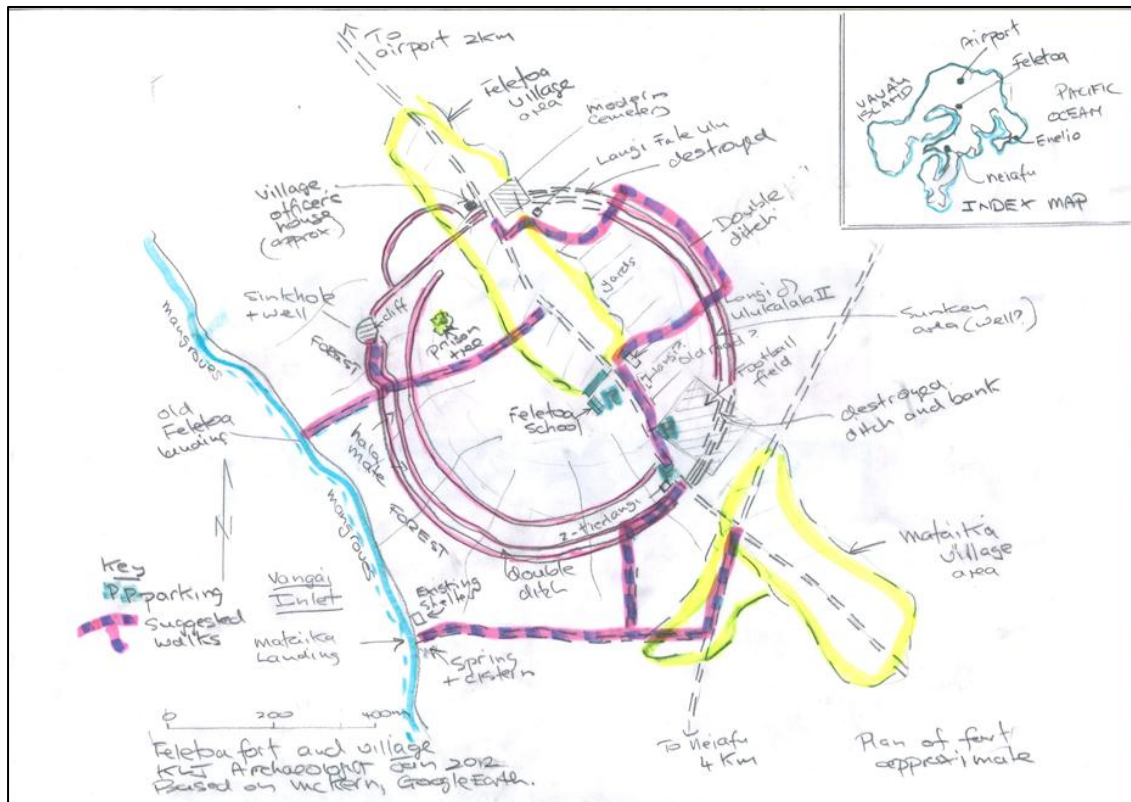 To
airport 2km
Feletoa
village
area
modern
cemetery
Langi Fale Ulu
destroyed
village
officers
house
(approx)
Double
ditch
sinkhole
+ well
cliff
prison
tree
FOREST
yards
Langi of
ulukalala II
Sunken
area (well?)
old road?
Football
field
destroyed
ditch and bank
Feletoa
School
old
Feletoa
Landing
mangroves
mangroves
hala
mate
FOREST
2-tier langi
double
ditch
Mataika
village
area
N
Key
P.P. parking
Suggested
walks
Vangai
Inlet
Existing
shelter
mataika
Landing
Spring
+ cistern
0 200 400m
Feletoa fort and village
KLJ Archaeologist Jan 2012
Based on McKern, GoogleEarth.
To Neiafu
4 Km
Plan of fort
approximate
Airport
Feletoa
VAVAU
ISLAND
PACIFIC
OCEAN
Enelio
neiafu
INDEX MAP